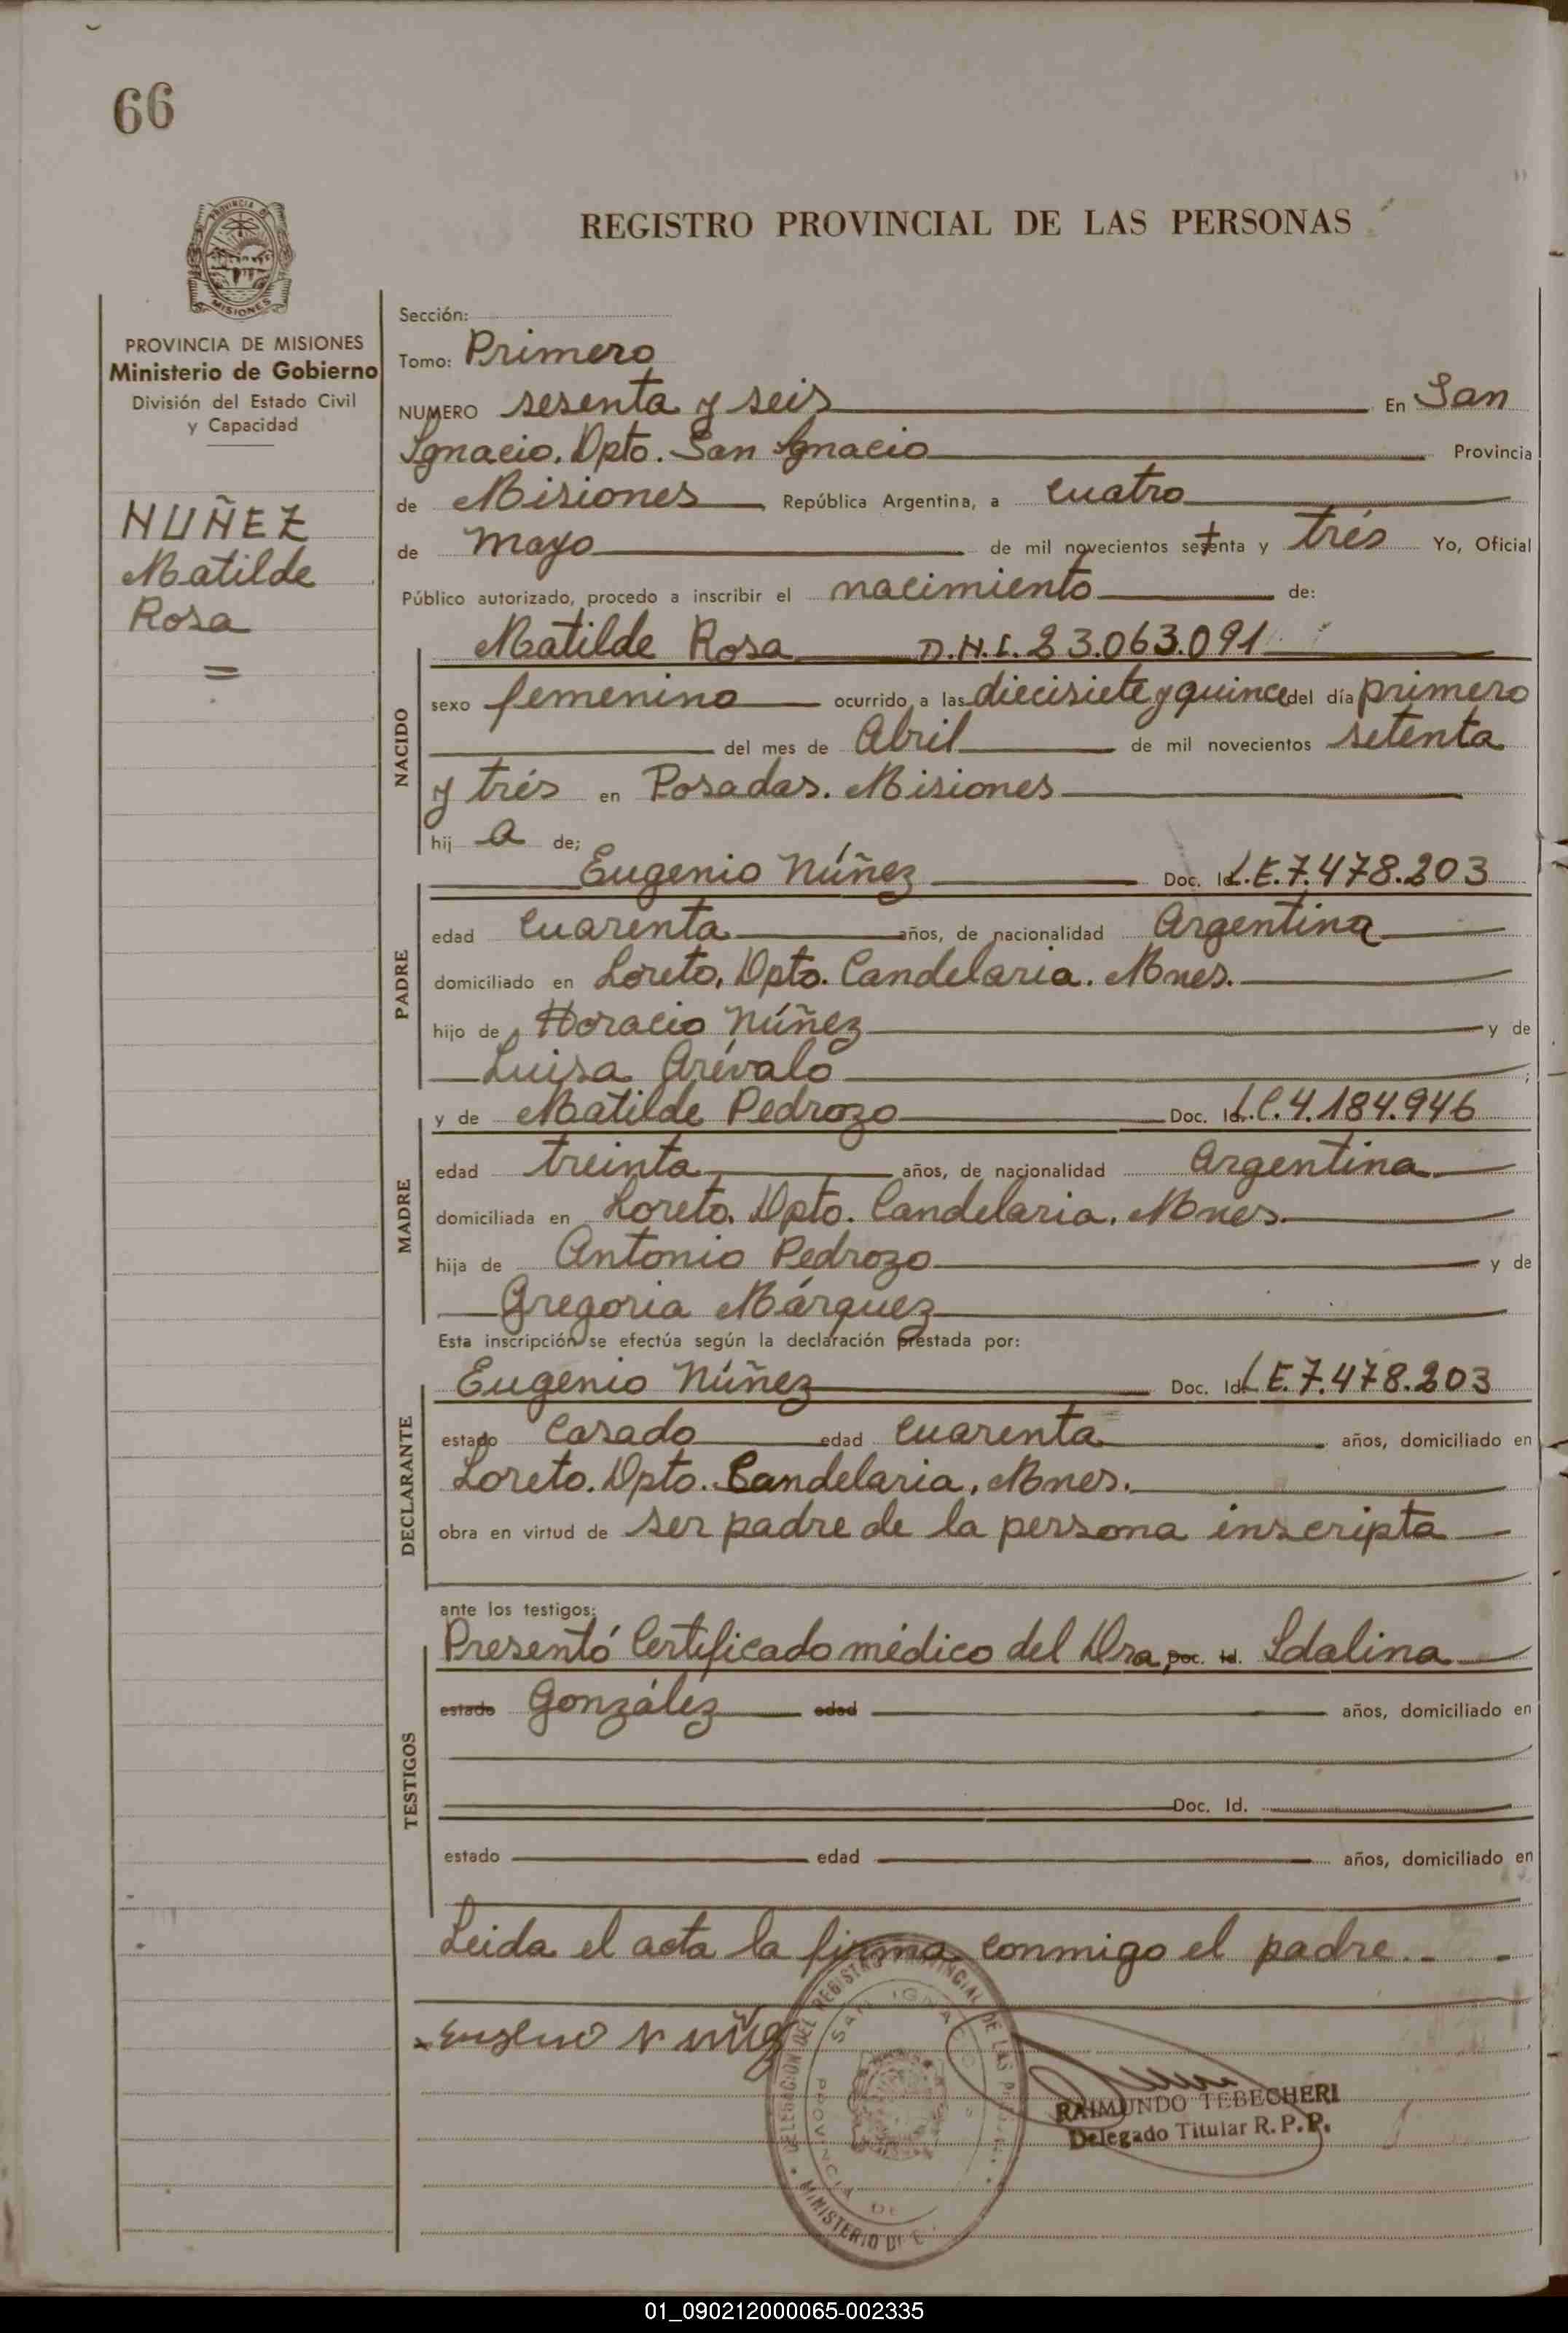 66
PROVINCIA DE
MISIONES
REGISTRO PROVINCIAL DE LAS PERSONAS
PROVINCIA DE MISIONES
Ministerio de Gobierno
División del Estado Civil
y Capacidad
NUÑEZ
Matilde
Rosa
Sección:
Tomo: Primero
NUMERO sesenta y seis En San
Ignacio. Dpto. San Ignacio Provincia
de Misiones República Argentina, a cuatro
de mayo de mil novecientos setenta y trés Yo, Oficial
Público autorizado, procedo a inscribir el nacimiento de:
NACIDO
Matilde Rosa D.N.I. 23.063.091
sexo femenino ocurrido a las diecisiete y quince del día primero
del mes de Abril de mil novecientos setenta
y trés en Posadas. Misiones
hij a de;
PADRE
Eugenio Núñez Doc. Id. L.E. 7.478.203
edad cuarenta años, de nacionalidad Argentina
domiciliado en Loreto. Dpto. Candelaria. Mnes.
hijo de Horacio Núñez y de
Luisa Arévalo ;
MADRE
y de Matilde Pedrozo Doc. Id. L.C. 4.184.946
edad treinta años, de nacionalidad Argentina
domiciliada en Loreto. Dpto. Candelaria. Mnes.
hija de Antonio Pedrozo y de
Gregoria Márquez
Esta inscripción se efectúa según la declaración prestada por:
DECLARANTE
Eugenio Núñez Doc. Id. L.E. 7.478.203
estado Casado edad cuarenta años, domiciliado en
Loreto. Dpto. Candelaria. Mnes.
obra en virtud de ser padre de la persona inscripta
ante los testigos:
TESTIGOS
Presentó Certificado médico del Dra. Doc. Id. Idalina
estado González edad años, domiciliado en
Doc. Id.
estado edad años, domiciliado en
Leida el acta la firma conmigo el padre.
Eugenio Nuñez
DELEGACION DEL REGISTRO PROVINCIAL DE LAS
SAN IGNACIO
PROVINCIA DE
MINISTERIO DE
RAIMUNDO TEBECHERI
Delegado Titular R. P. P.
01_090212000065-002335